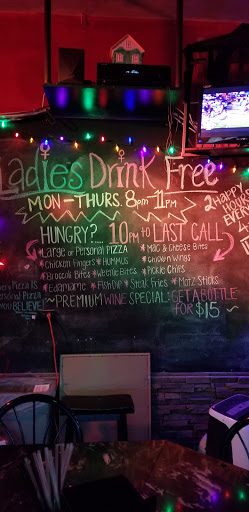 Ladies Drink Free
MON-THURS. 8pm-11pm
2 HAPPY
HOURS
EVER
HUNGRY?... 10PM to LAST CALL
*LARGE or PERSONAL PIZZA
*MAC & CHEESE BITES
*CHICKEN FINGERS *HUMMUS
*CHICKEN WINGS
*BROCCOLI BITES *WEENIE BITES
*PICKLE CHIPS
*EDAMAME *FISH DIP *STEAK FRIES *MOTZ STICKS
~PREMIUM WINE SPECIAL: GET A BOTTLE
FOR $15~
PIZZA IS
PERSONAL PIZZA
BELIEVE!